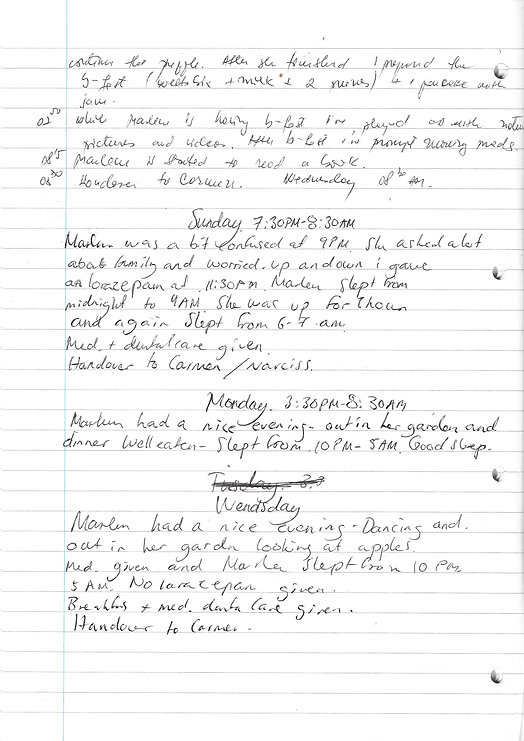 continue the puzzle. After she finished I prepared the
b-fast (weetabix + milk + 2 prunes) + 1 pancake with
jam.
07 50 While Marlen is having b-fast I'm played with
pictures and videos. After b-fast I'm prompt morning meds.
08 15 Marlene is started to read a book.
08 30 Handover to Carmen. Wednesday 08 30 am.
Sunday. 7:30PM-8:30AM
Marlen was a bit confused at 9PM. She asked a lot
about family and worried. up and down i gave
an lorazepam at 11:30PM. Marlen Slept from
midnight to 4AM She was up for 1 hour
and again Slept from 6-7 am.
Med. + dental care given.
Handover to Carmen / Narciss.
Monday. 3:30PM-8:30AM
Marlen had a nice evening - out in her garden and
dinner well eaten - Slept from 10PM-5AM. Good sleep.
Tuesday - 3.3
Wendsday
Marlen had a nice evening - Dancing and
out in her garden looking at apples.
Med. given and Marlen Slept from 10 PM
5 AM. No lorazepan given.
Breakfas + med. denta Care given.
Handover to Carmen.